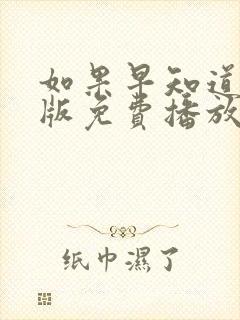 如果早知道
版免費播放
纸巾濕了